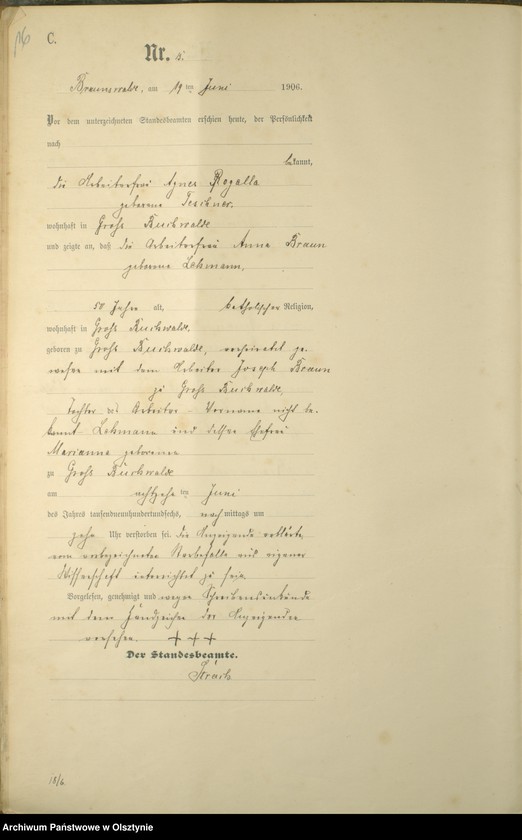 C.
Nr. 5.
Braunswalde, am 19 ten Juni 1906.
Vor dem unterzeichneten Standesbeamten erschien heute, der Persönlichkeit
nach
bekannt,
die Arbeiterfrau Agnes Rogalla
geborene Teschner,
wohnhaft in Groß Buchwalde
und zeigte an, daß die Arbeiterfrau Anna Braun
geborene Lehmann,
50 Jahre alt, katholischer Religion,
wohnhaft in Groß Buchwalde,
geboren zu Groß Buchwalde, verheiratet ge-
wesen mit dem Arbeiter Joseph Braun
zu Groß Buchwalde,
Tochter des Arbeiter - Vorname nicht be-
kannt - Lehmann und dessen Ehefrau
Marianna geborenen
zu Groß Buchwalde
am achtzehn ten Juni
des Jahres tausendneunhundertundsechs, nach mittags um
zehn Uhr verstorben sei. Die Anzeigende erklärte,
vom vorbezeichneten Sterbefalle aus eigener
Wissenschaft unterrichtet zu sein.
Vorgelesen, genehmigt und wegen Schreibensunkunde
mit dem Handzeichen der Anzeigenden
versehen. + + +
Der Standesbeamte.
18/6
Archiwum Państwowe w Olsztynie